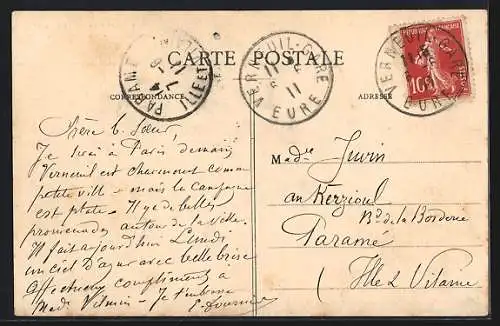 CARTE POSTALE
CORRESPONDANCE
ADRESSE
PARAMÉ
ILLE ET
VERNEUIL-GARE
11
EURE
VERNEUIL-GARE
EURE
10
Je serai à Paris demain
Verneuil est charmant comme
petite ville - mais la campagne
est plate - Il y a de belles
promenades autour de la ville.
Il fait aujourd'hui Lundi
un ciel d'azur avec belle brise
Affectueux compliments à
Je t'embrasse
Juvin
an Kerzioul
Bd de la Bordene
Paramé
(Ille & Vilaine